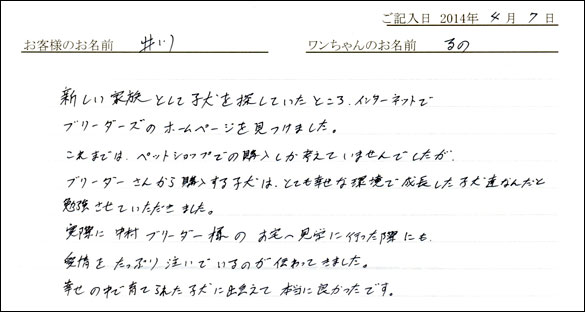 ご記入日 2014年 4月 7日
お客様のお名前 井川 ワンちゃんのお名前 るの
新しい家族として子犬を探していたところ、インターネットで
ブリーダーズのホームページを見つけました。
これまでは、ペットショップでの購入しか考えていませんでしたが、
ブリーダーさんから購入する子犬は、とても幸せな環境で成長した子犬達なんだと
勉強させていただきました。
実際に中村ブリーダー様のお宅へ見学に行った際にも、
愛情をたっぷり注いでいるのが伝わってきました。
幸せの中で育てられた子犬に出会えて本当に良かったです。